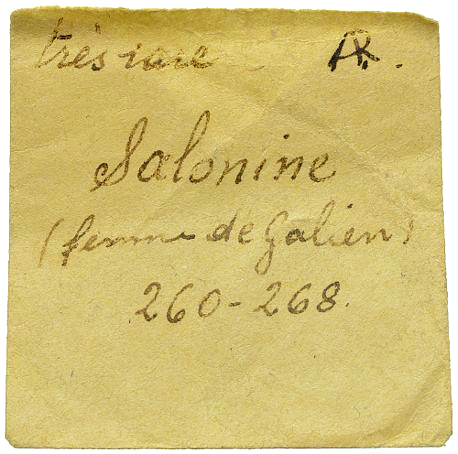 très rare AR.
Salonine
(femme de Galien)
260-268.